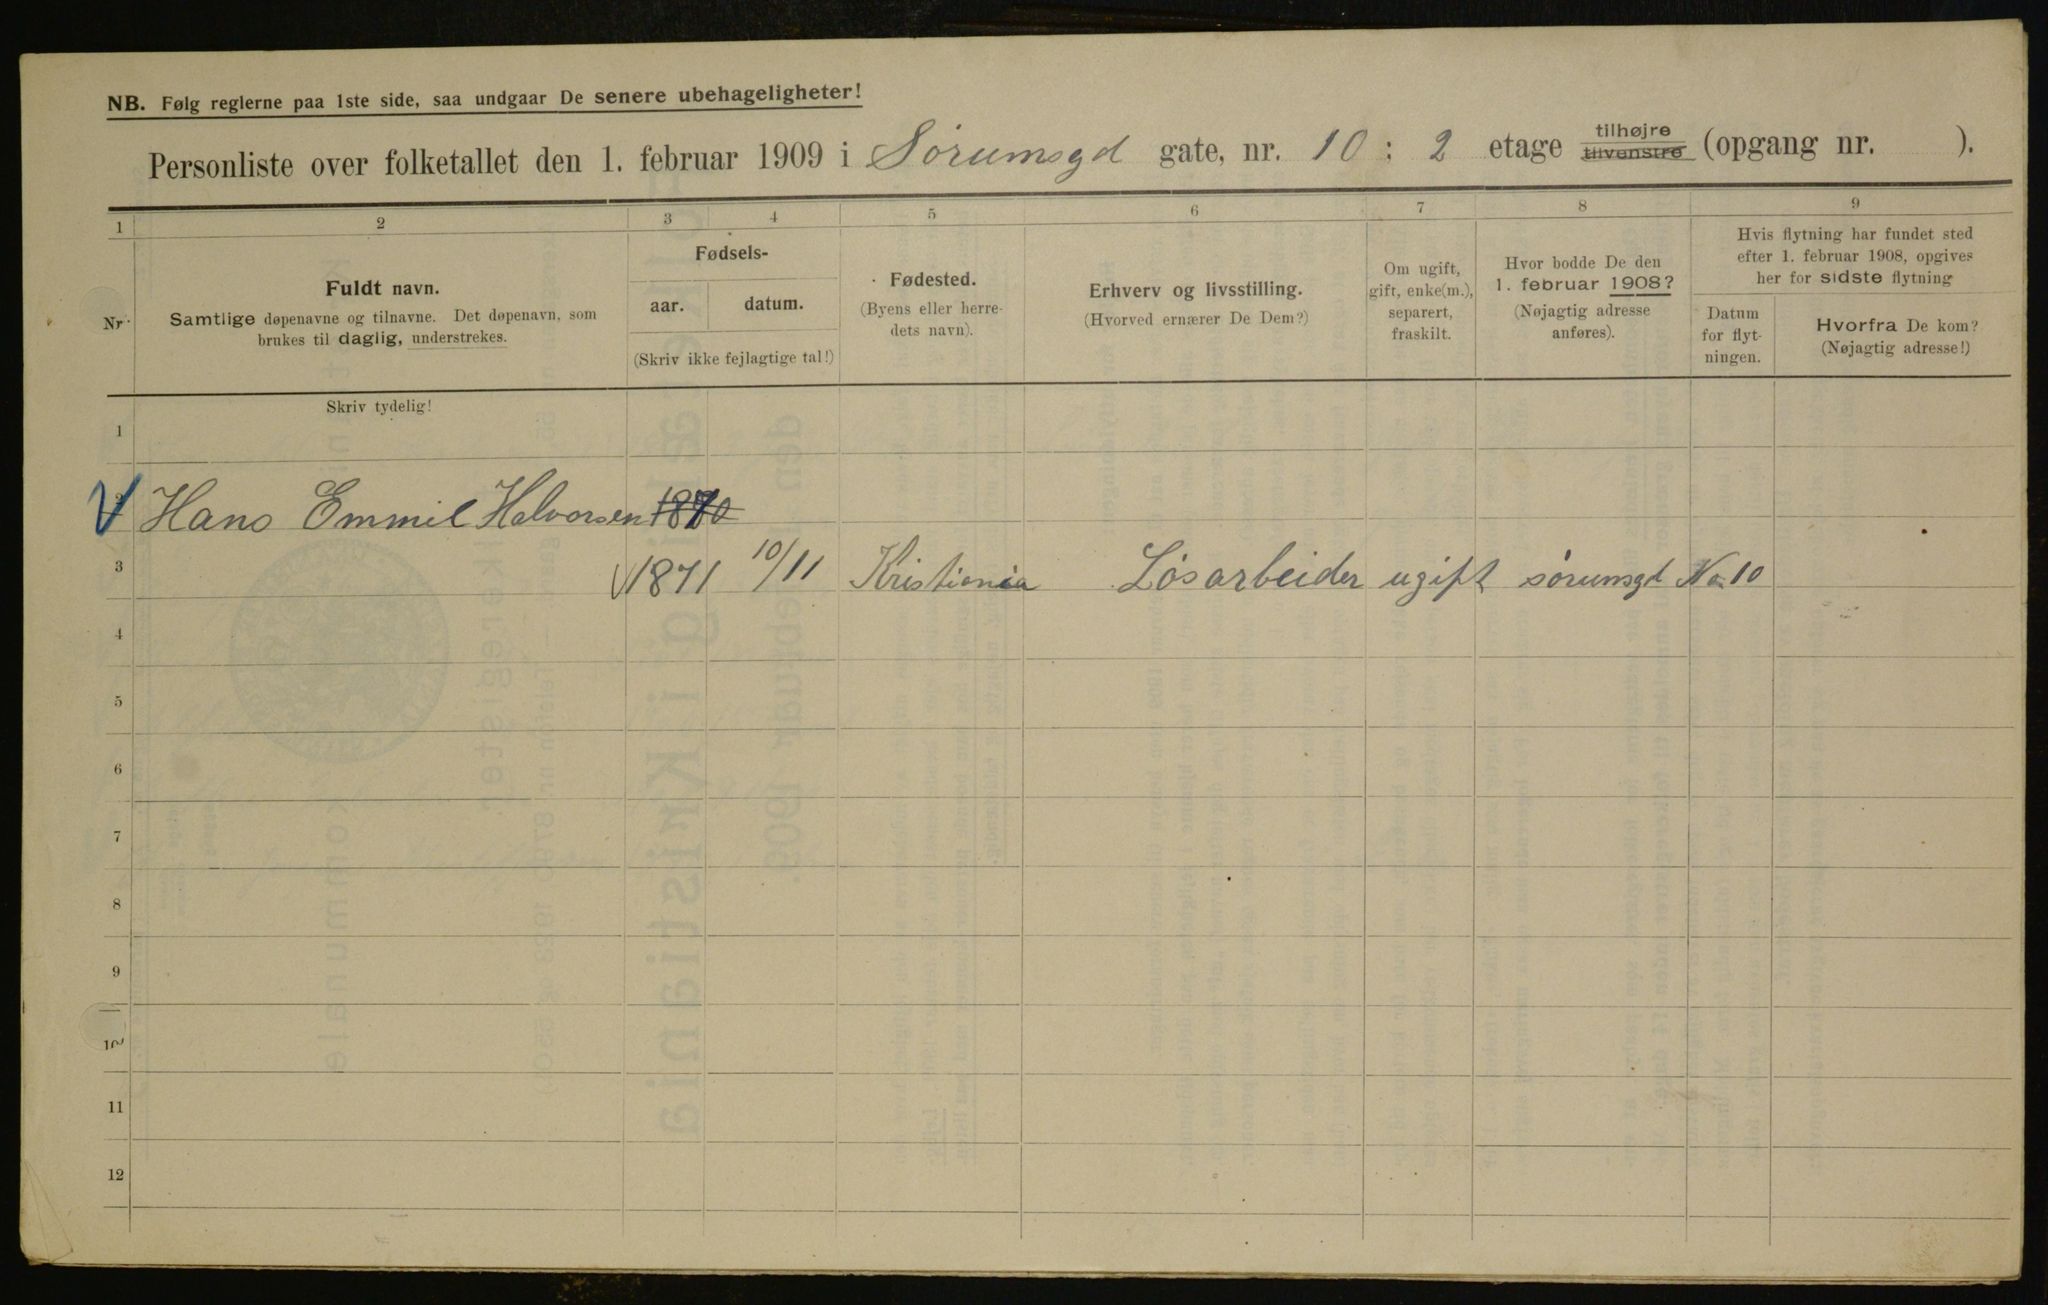 NB. Følg reglerne paa 1ste side, saa undgaar De senere ubehageligheter!
Personliste over folketallet den 1. februar 1909 i Sørumsgd gate, nr. 10 : 2 etage tilhøjre tilvenstre (opgang nr. ).
1 2 3 4 5 6 7 8 9
Nr.
Fuldt navn.
Samtlige døpenavne og tilnavne. Det døpenavn, som
brukes til daglig, understrekes.
Fødsels-
aar. datum.
(Skriv ikke fejlagtige tal!)
Fødested.
(Byens eller herre-
dets navn).
Erhverv og livsstilling.
(Hvorved ernærer De Dem?)
Om ugift,
gift, enke(m.),
separert,
fraskilt.
Hvor bodde De den
1. februar 1908?
(Nøjagtig adresse
anføres).
Hvis flytning har fundet sted
efter 1. februar 1908, opgives
her for sidste flytning
Datum
for flyt-
ningen.
Hvorfra De kom?
(Nøjagtig adresse!)
Skriv tydelig!
1
2 Hans Emmil Halvorsen 1870
3 1871 10/11 Kristiania Løsarbeider ugift sørumsgd No 10
4
5
6
7
8
9
10
11
12